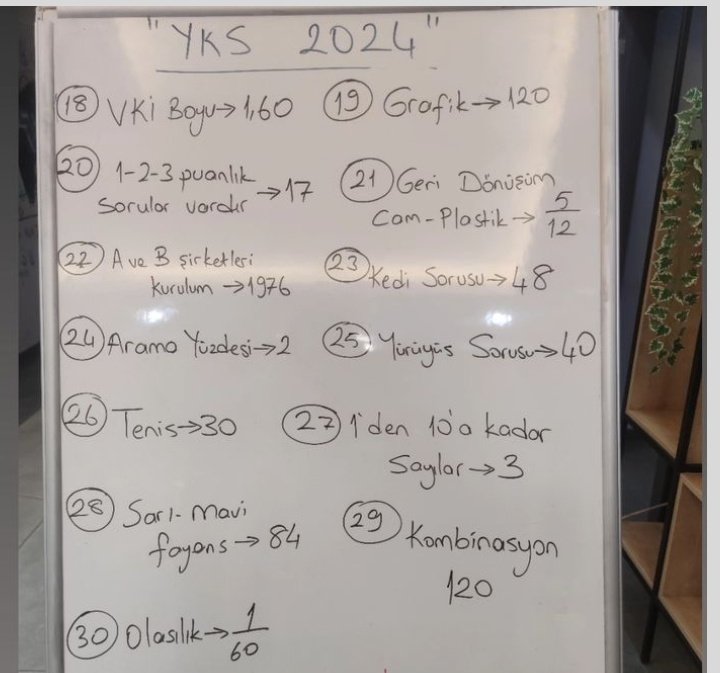 "YKS 2024"
18 VKİ Boyu→1,60
19 Grafik→120
20 1-2-3 puanlık
Sorular vardır →17
21 Geri Dönüşüm
Cam-Plastik→ 5/12
22 A ve B şirketleri
kurulum →1976
23 Kedi Sorusu→48
24 Arama Yüzdesi→2
25 Yürüyüş Sorusu→40
26 Tenis→30
27 1'den 10'a kadar
Sayılar→3
28 Sarı-mavi
fayans→84
29 Kombinasyon
120
30 Olasılık→ 1/60